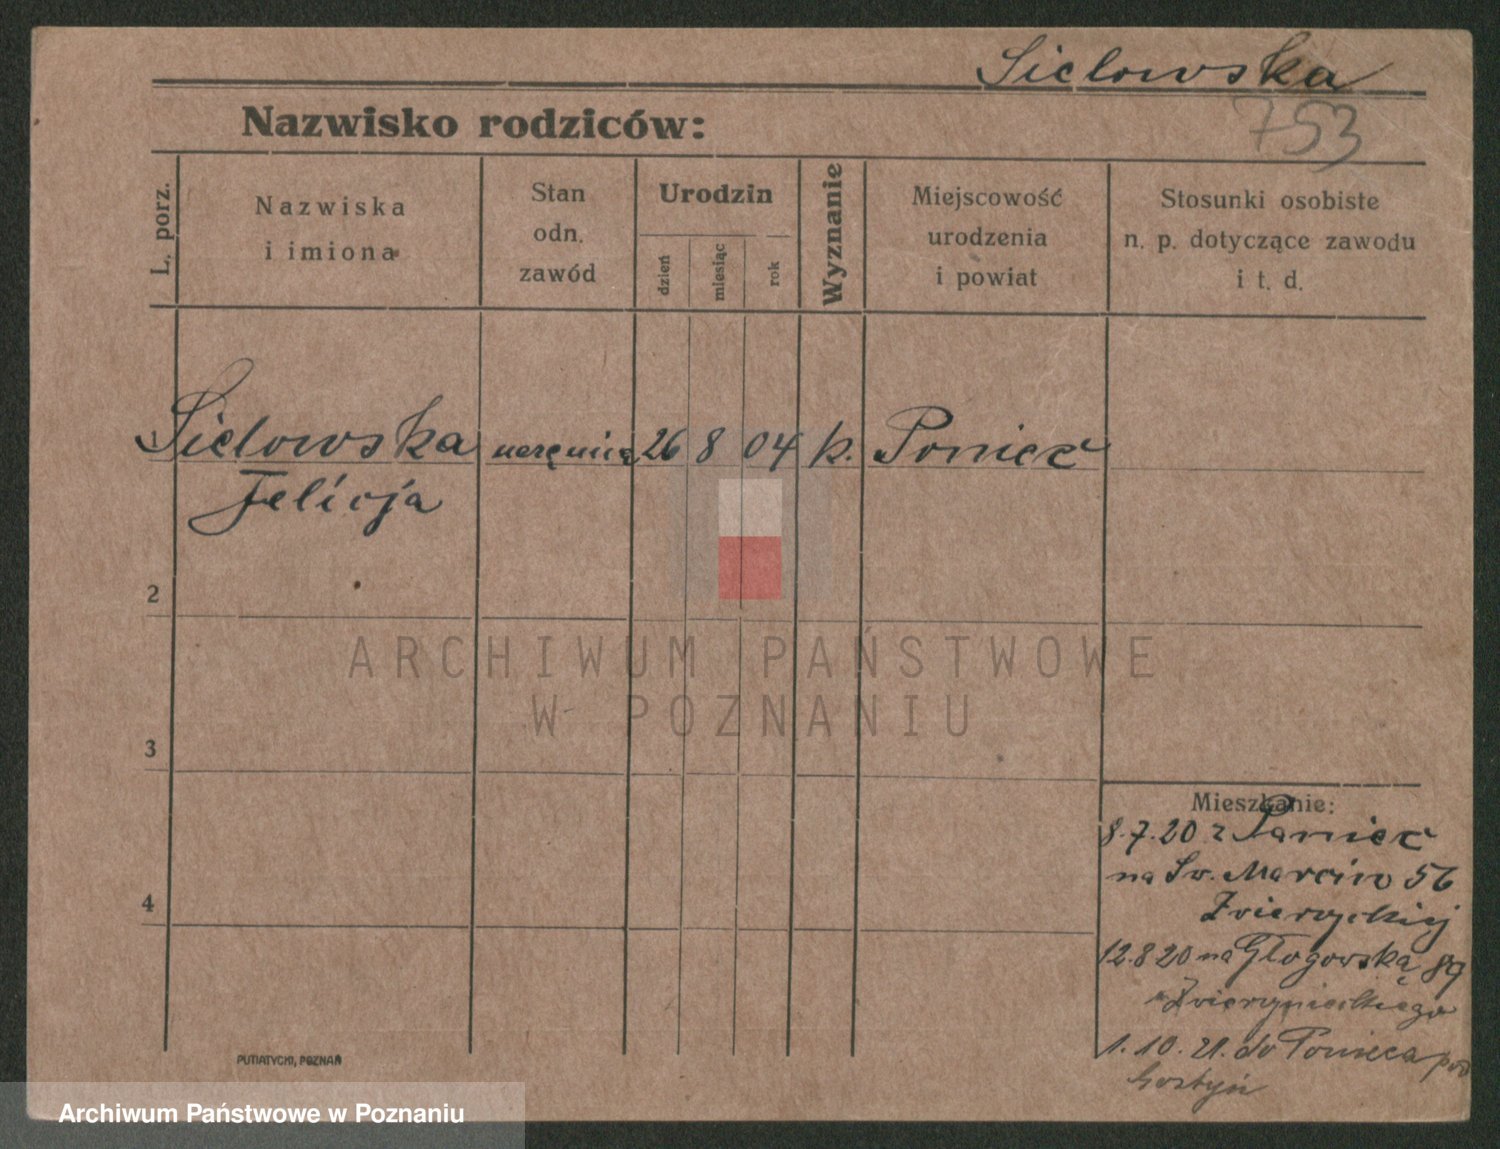 Sielowska
753
Nazwisko rodziców:
L. porz.
Nazwiska
i imiona
Stan
odn.
zawód
Urodzin
dzień
miesiąc
rok
Wyznanie
Miejscowość
urodzenia
i powiat
Stosunki osobiste
n. p. dotyczące zawodu
i t. d.
1 Sielowska uczęnica 26 8 04 k. Poniec
Felicja
2
3
4
ARCHIWUM PAŃSTWOWE
W POZNANIU
Mieszkanie:
8.7.20 z Poniec
na Św. Marcin 56
12.8 20 na Głogowską 89
1. 10. 21. do Ponieca pod
Gostyń
PUTIATYCKI, POZNAŃ
Archiwum Państwowe w Poznaniu